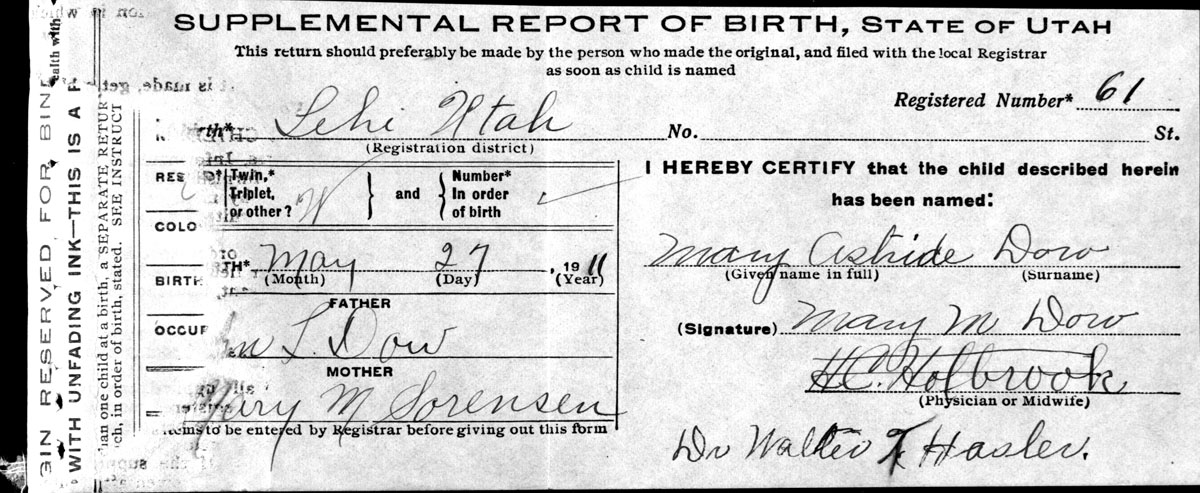 SUPPLEMENTAL REPORT OF BIRTH, STATE OF UTAH
This return should preferably be made by the person who made the original, and filed with the local Registrar
as soon as child is named
Registered Number* 61
rth* Lehi Utah No. St.
(Registration district)
I HEREBY CERTIFY that the child described herein
has been named:
RES
D* Twin,* Triplet, or other? W } and { Number* In order of birth
COLO
TH* May 27, 1911
(Month) (Day) (Year)
BIRTH
Mary Astride Dow
(Given name in full) (Surname)
FATHER
OCCUP
m L. Dow
(Signature) Mary M Dow
MOTHER
Mary M Sorensen
H.C. Holbrook
(Physician or Midwife)
items to be entered by Registrar before giving out this form
Dr Walter T. Hasler.
GIN RESERVED FOR BIND
WITH UNFADING INK—THIS IS A P
han one child at a birth, a SEPARATE RETUR
ch, in order of birth, stated. SEE INSTRUCT
ealth with